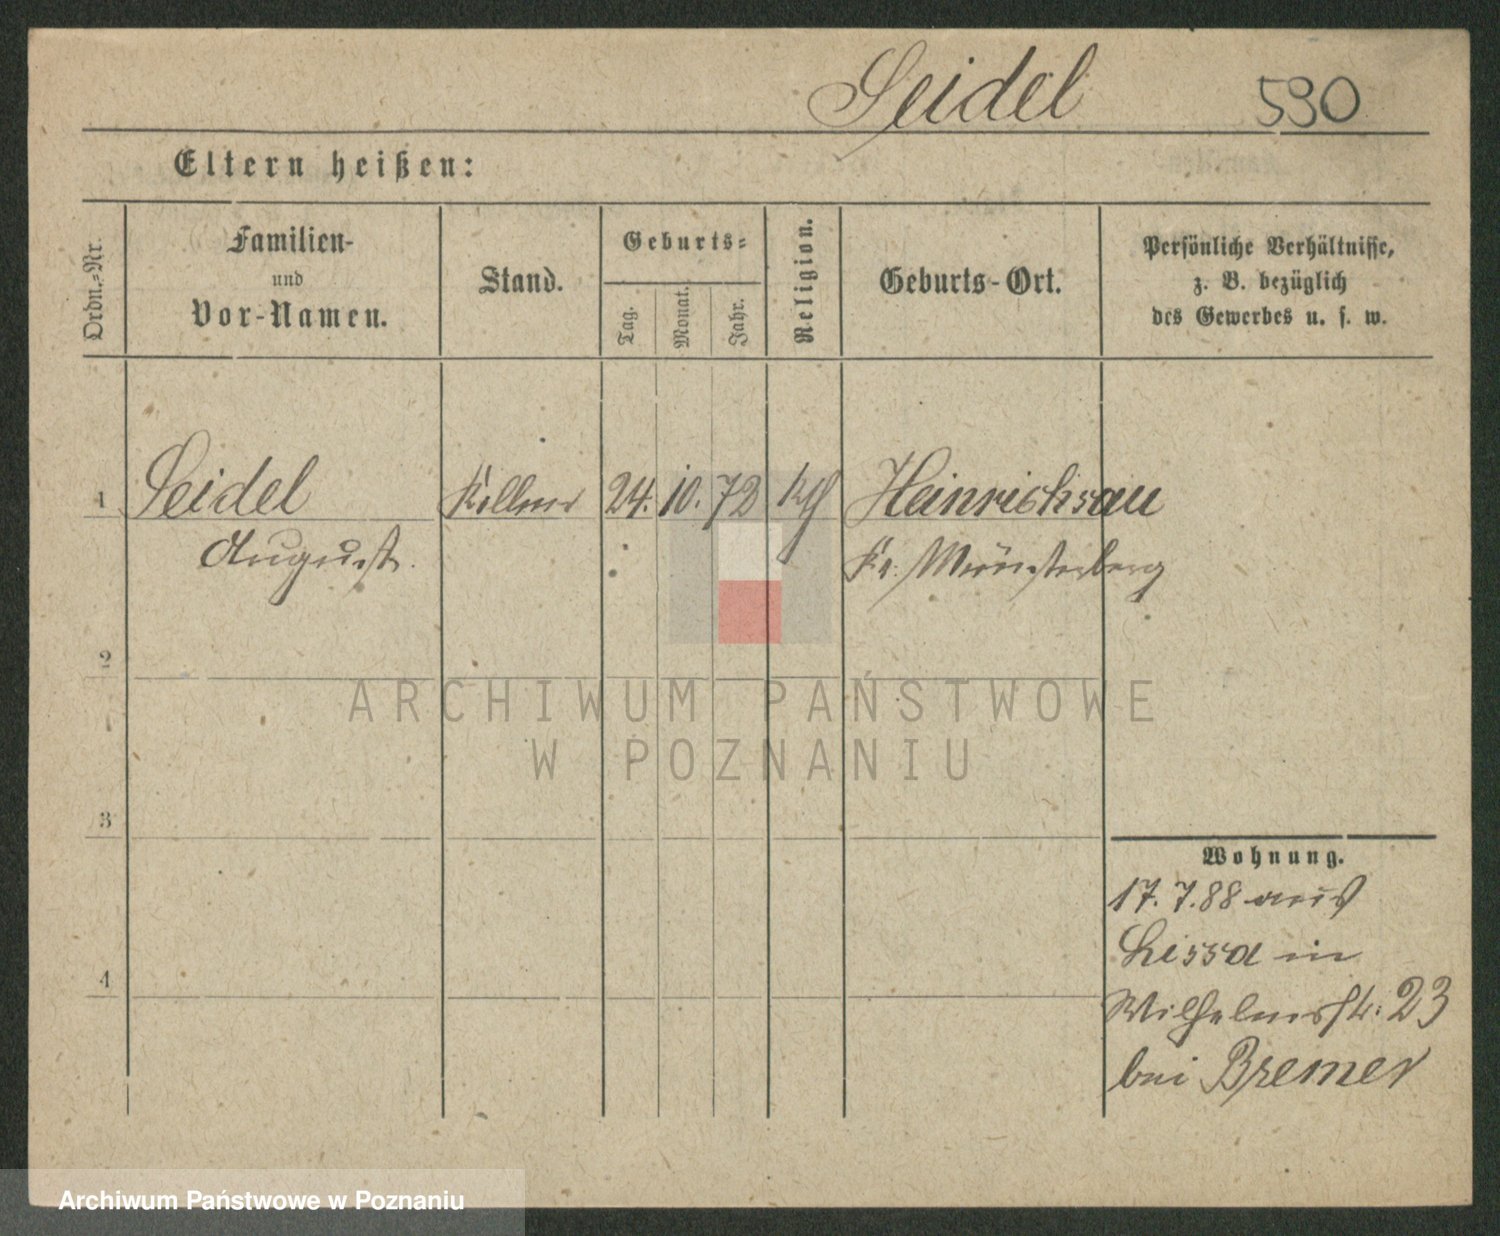 Seidel 590
Eltern heißen:
Ordn.-Nr.
Familien-
und
Vor-Namen.
Stand.
Geburts-
Tag.
Monat.
Jahr.
Religion.
Geburts-Ort.
Persönliche Verhältnisse,
z. B. bezüglich
des Gewerbes u. s. w.
1 Seidel Kellner 24. 10. 72 kth Heinrichsau
August. Kr. Münsterberg
2
ARCHIWUM PAŃSTWOWE
W POZNANIU
3
Wohnung.
17. 7. 88 aus
Lissa in
4
Wilhelmsstr: 23
bei Bremer
Archiwum Państwowe w Poznaniu